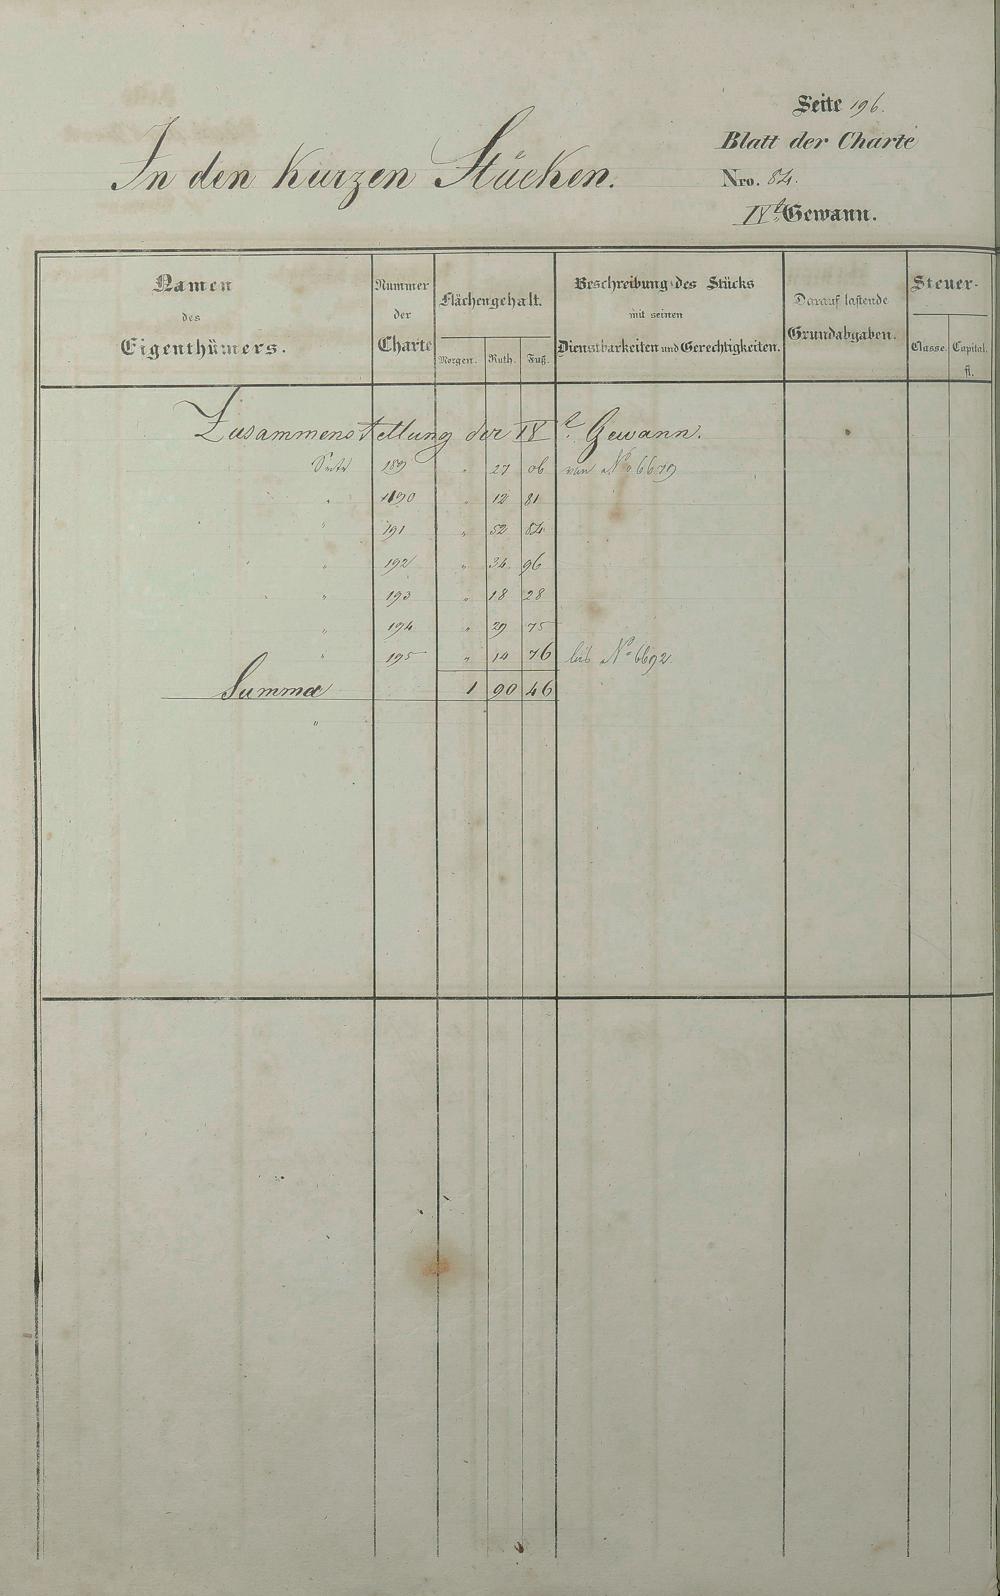 Seite 196.
Blatt der Charte
In den kurzen Stücken.
Nro. 84.
IVt. Gewann.
Namen des Eigenthümers.
Nummer der Charte
Flächengehalt.
Morgen. Ruth. Fuß.
Beschreibung des Stücks mit seinen Dienstbarkeiten und Gerechtigkeiten.
Darauf lastende Grundabgaben.
Steuer-
Classe. Capital. fl.
Zusammenstellung der IVt. Gewann.
Seite 189 " 27 06 von No. 6679
" 190 " 12 81
" 191 " 52 84
" 192 " 34 96
" 193 " 18 28
" 194 " 29 75
" 195 " 14 76 bis No. 6692.
Summa 1 90 46
"